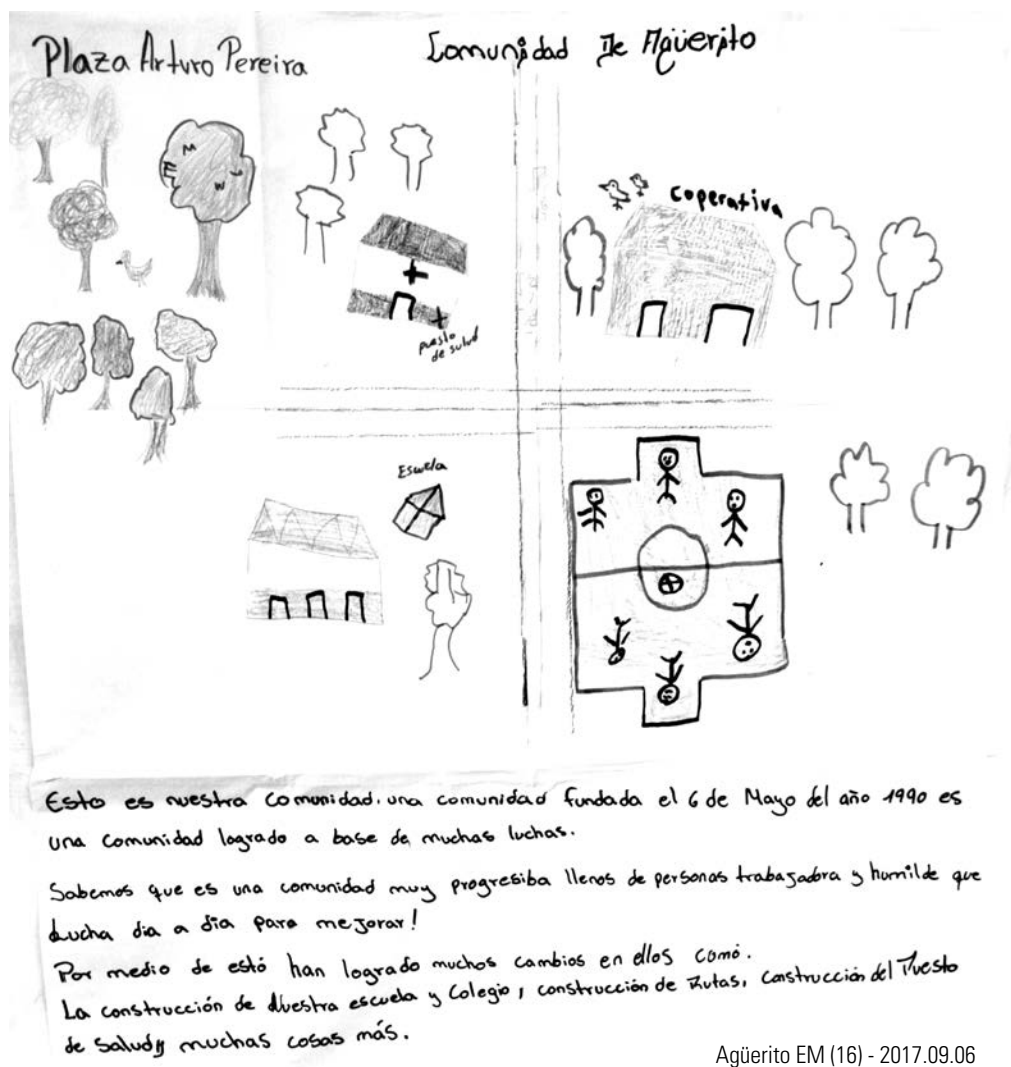 Plaza Arturo Pereira
Comunidad De Agüerito
coperativa
puesto
de salud
Escuela
Esto es nuestra comunidad. una comunidad fundada el 6 de Mayo del año 1990 es
una comunidad logrado a base de muchas luchas.
Sabemos que es una comunidad muy progresiba llenos de personas trabajadora y humilde que
Lucha dia a dia para mejorar!
Por medio de estó han logrado muchos cambios en ellos comó.
La construcción de Nuestra escuela y Colegio, construcción de Rutas, construcción del Puesto
de Salud y muchas cosas más.
Agüerito EM (16) - 2017.09.06